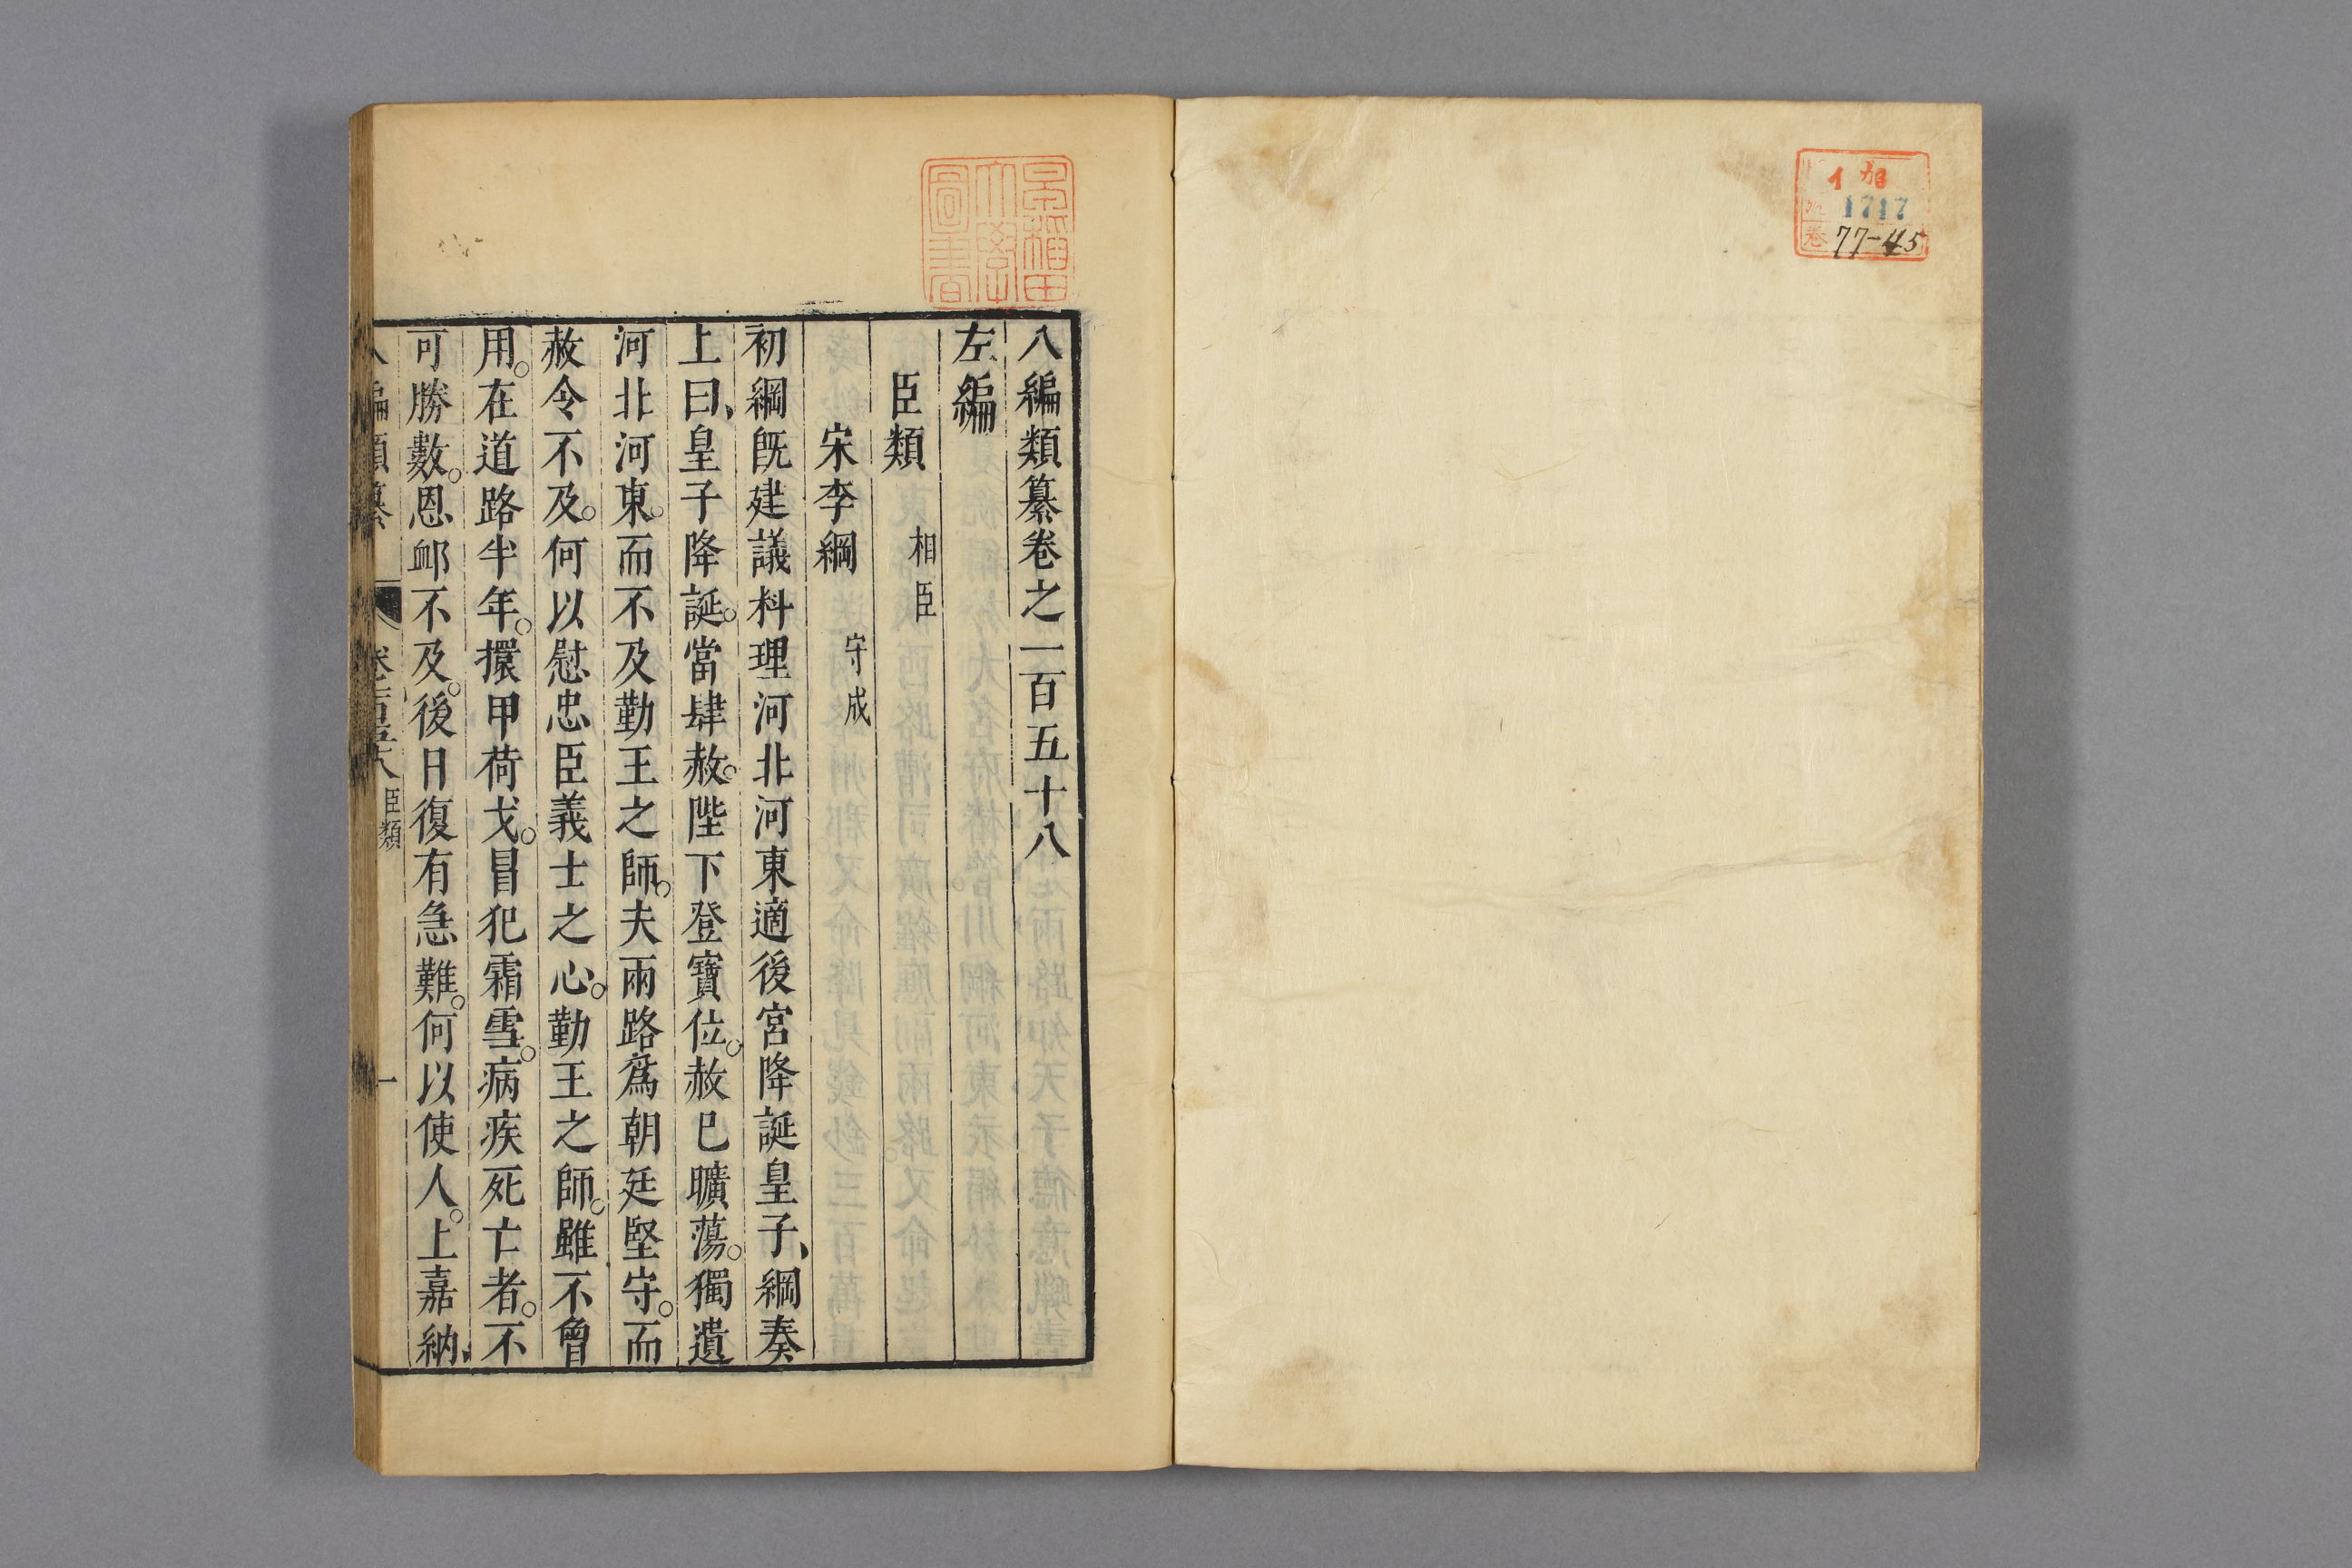 イ 加
1717
卷 77-45
早稲田
大學
圖書
八編類纂卷之一百五十八
左編
臣類 相臣
宋李綱 守成
初綱旣建議料理河北河東適後宮降誕皇子、綱奏
上曰、皇子降誕。當肆赦。陛下登寶位。赦已曠蕩。獨遺
河北河東。而不及勤王之師。夫兩路爲朝廷堅守。而
赦令不及。何以慰忠臣義士之心。勤王之師。雖不曾
用。在道路半年。擐甲荷戈。冒犯霜雪。病疾死亡者。不
可勝數。恩衈不及。後日復有急難。何以使人。上嘉納、
八編類纂 卷一百五十八 臣類 一